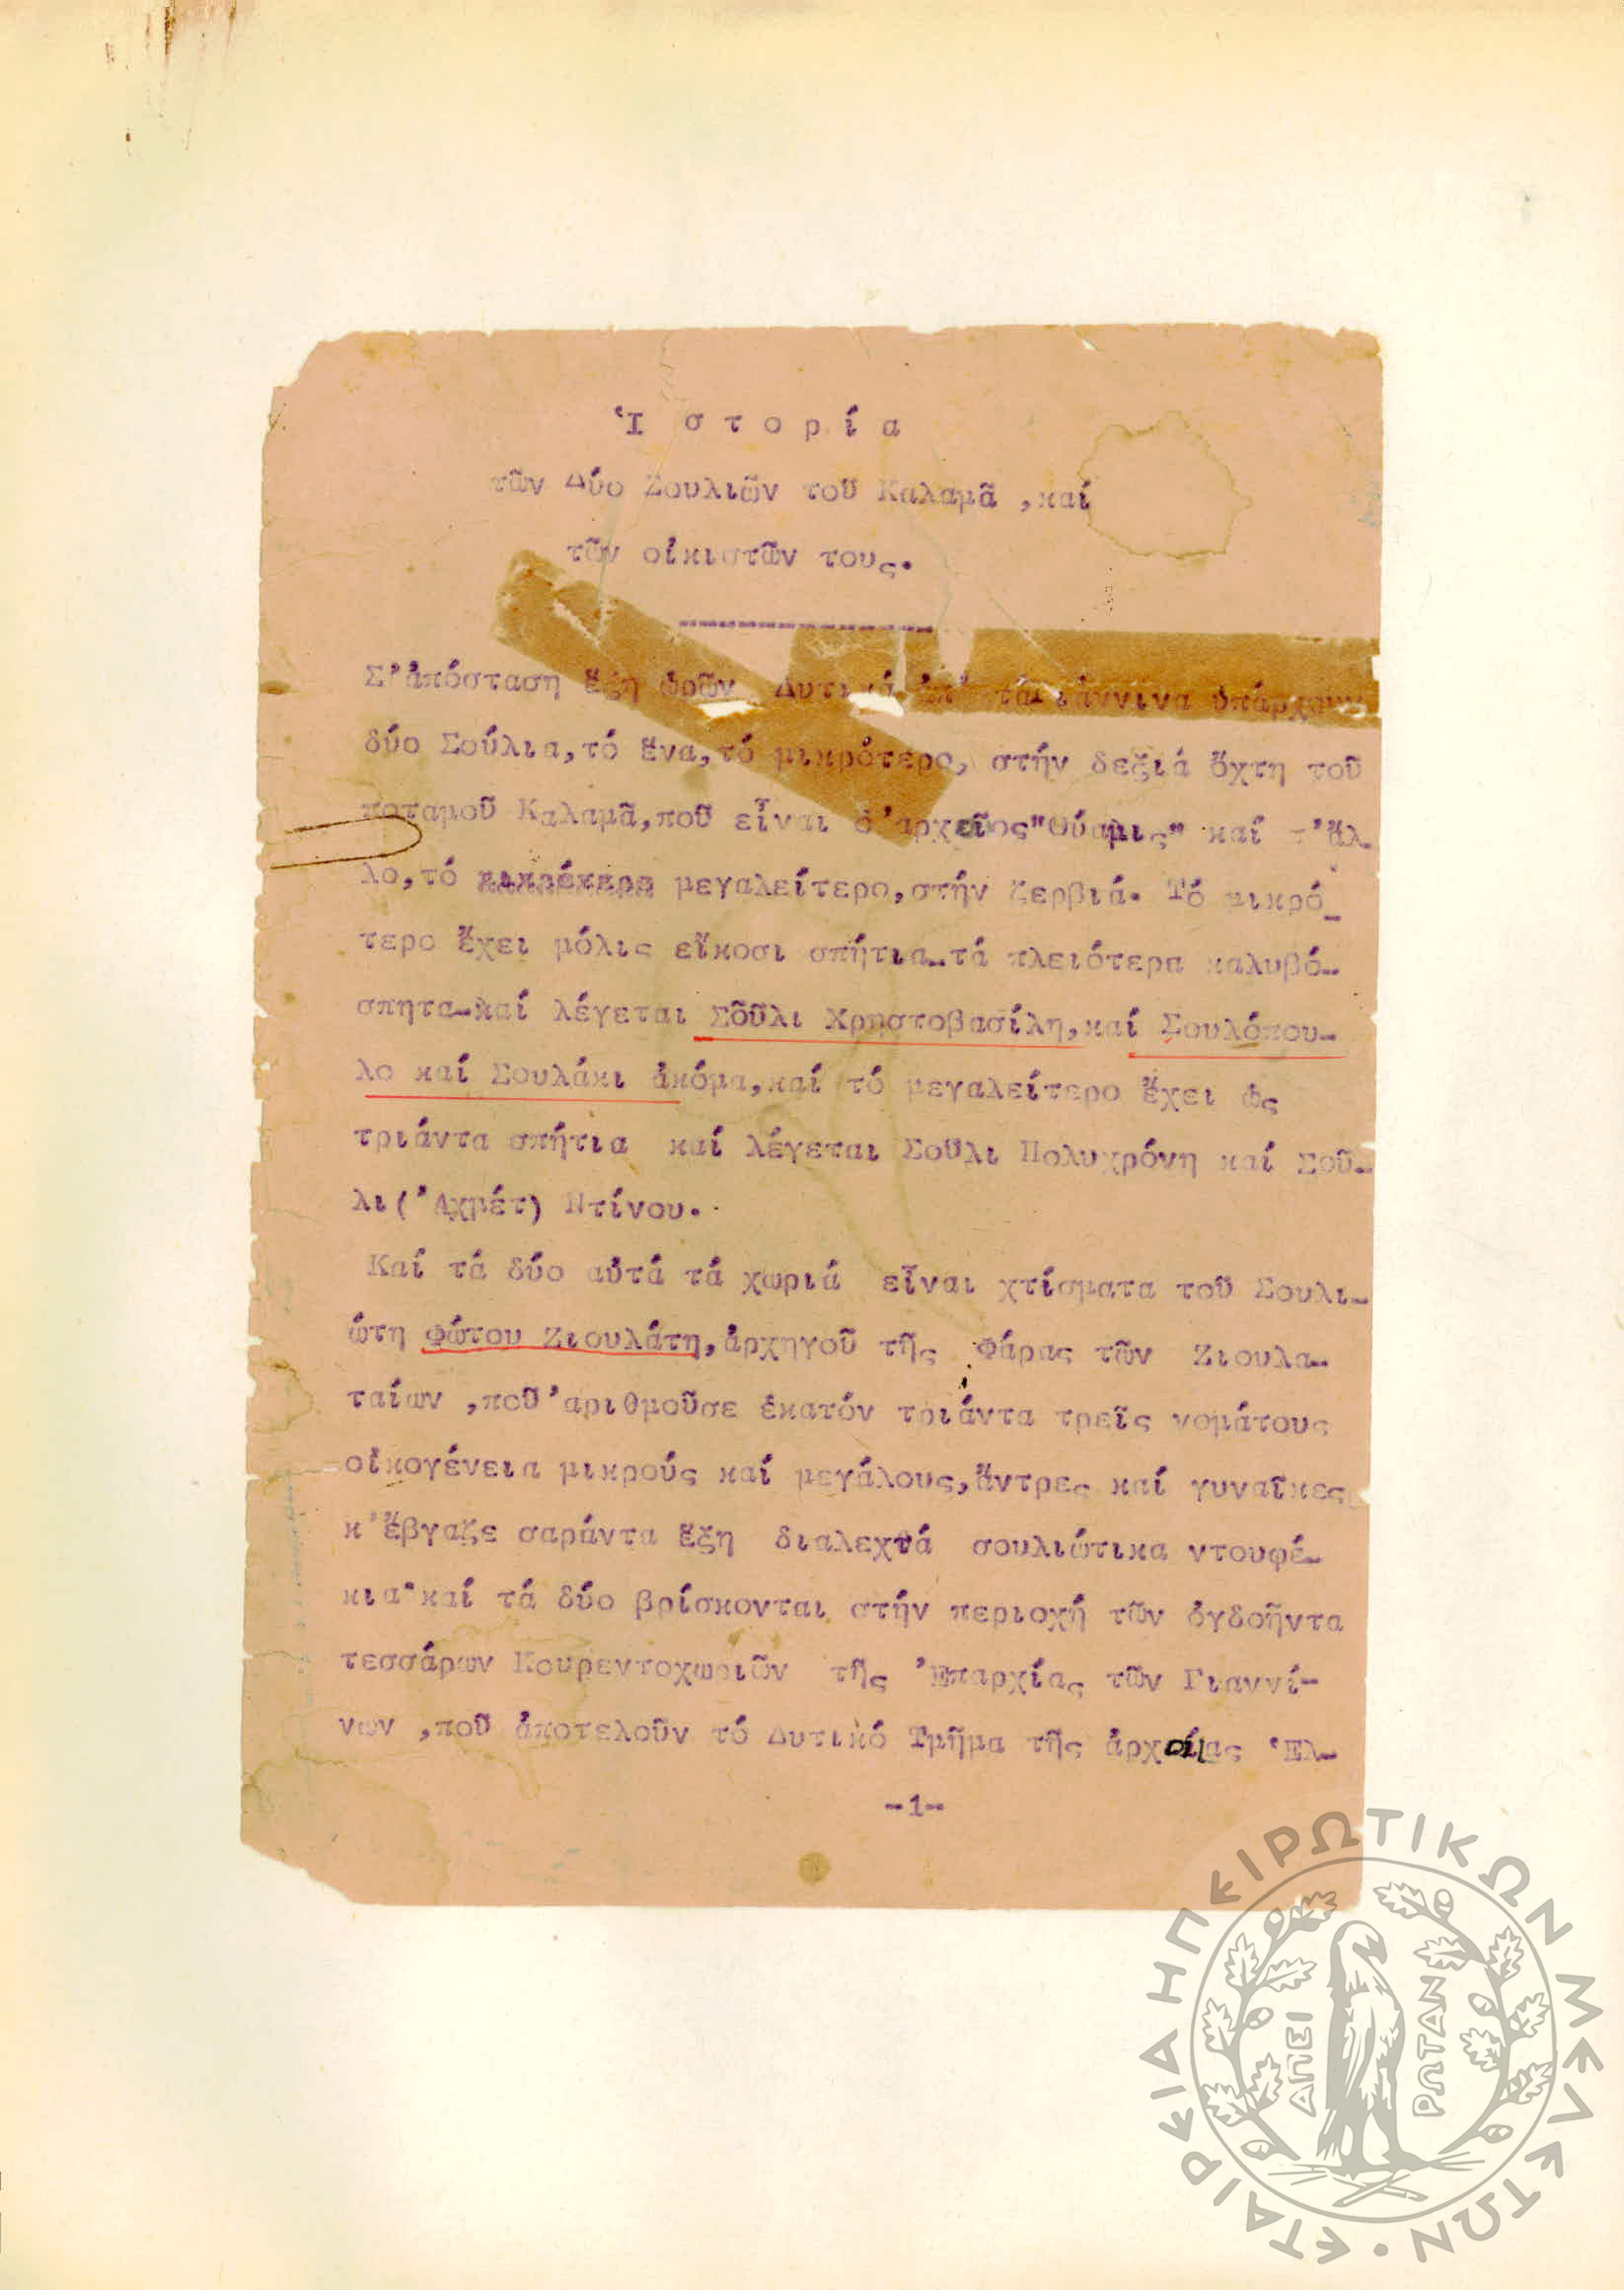 Ἱ σ τ ο ρ ί α
τῶν Δύο Σουλιῶν τοῦ Καλαμᾶ ,καί
τῶν οἰκιστῶν τους.
Σ'ἀπόσταση ἕξη ὡρῶν Δυτικά ἀπ' τά Γιάννινα ὑπάρχουν
δύο Σούλια,τό ἕνα,τό μικρότερο, στήν δεξιά ὄχτη τοῦ
ποταμοῦ Καλαμᾶ,ποῦ εἶναι ὁ'αρχαῖος"Θύαμις" καί τ'ἄλ-
λο,τό μεγαλείτερο,στήν ζερβιά. Τό μικρό-
τερο ἔχει μόλις εἴκοσι σπήτια-τά πλειότερα καλυβό-
σπητα-καί λέγεται Σοῦλι Χρηστοβασίλη,καί Σουλόπου-
λο καί Σουλάκι ἀκόμα,καί τό μεγαλείτερο ἔχει ὡς
τριάντα σπήτια καί λέγεται Σοῦλι Πολυχρόνη καί Σοῦ-
λι('Αχμέτ) Ντίνου.
Καί τά δύο αὐτά τά χωριά εἶναι χτίσματα τοῦ Σουλι-
ώτη Φώτου Ζιουλάτη,ἀρχηγοῦ τῆς Φάρας τῶν Ζιουλα-
ταίων ,ποῦ'αριθμοῦσε ἑκατόν τριάντα τρεῖς νομάτους
οἰκογένεια μικρούς καί μεγάλους,ἄντρες καί γυναῖκες
κ'ἔβγαζε σαράντα ἕξη διαλεχτά σουλιώτικα ντουφέ-
κια·καί τά δύο βρίσκονται στήν περιοχή τῶν ὀγδοῆντα
τεσσάρων Κουρεντοχωριῶν τῆς 'Επαρχίας τῶν Γιαννί-
νων ,ποῦ ἀποτελοῦν τό Δυτικό Τμῆμα τῆς ἀρχαίας Ἑλ-
-1-
ΕΤΑΙΡΕΙΑ ΗΠΕΙΡΩΤΙΚΩΝ ΜΕΛΕΤΩΝ •
ΑΠΕΙ ΡΩΤΑΝ